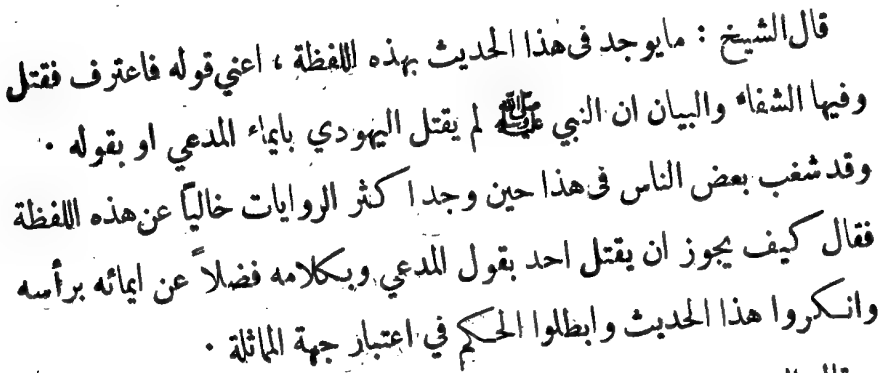 قال الشيخ : ما يوجد في هذا الحديث بهذه اللفظة ، اعني قوله فاعترف فقتل
وفيها الشفاء والبيان ان النبي ﷺ لم يقتل اليهودي بايماء المدعي او بقوله .
وقد شغب بعض الناس في هذا حين وجد اكثر الروايات خالياً عن هذه اللفظة
فقال كيف يجوز ان يقتل احد بقول المدعي وبكلامه فضلاً عن ايمائه برأسه
وانكروا هذا الحديث وابطلوا الحكم في اعتبار جهة المماثلة .